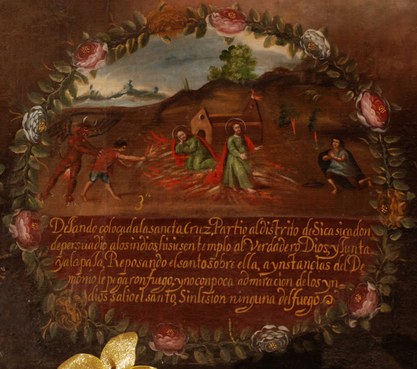 3ª
Dexando colocada la sancta Cruz, Partio al distrito de Sicasica don
de persuadio a los indios hisiesen templo al Verdadero Dios, y junta
Reposando el santo sobre ella, a ynstancias del De
monio le pegaron fuego, y no con poca admiracion de los yn
dios salio el santo, sin lesion ninguna del fuego